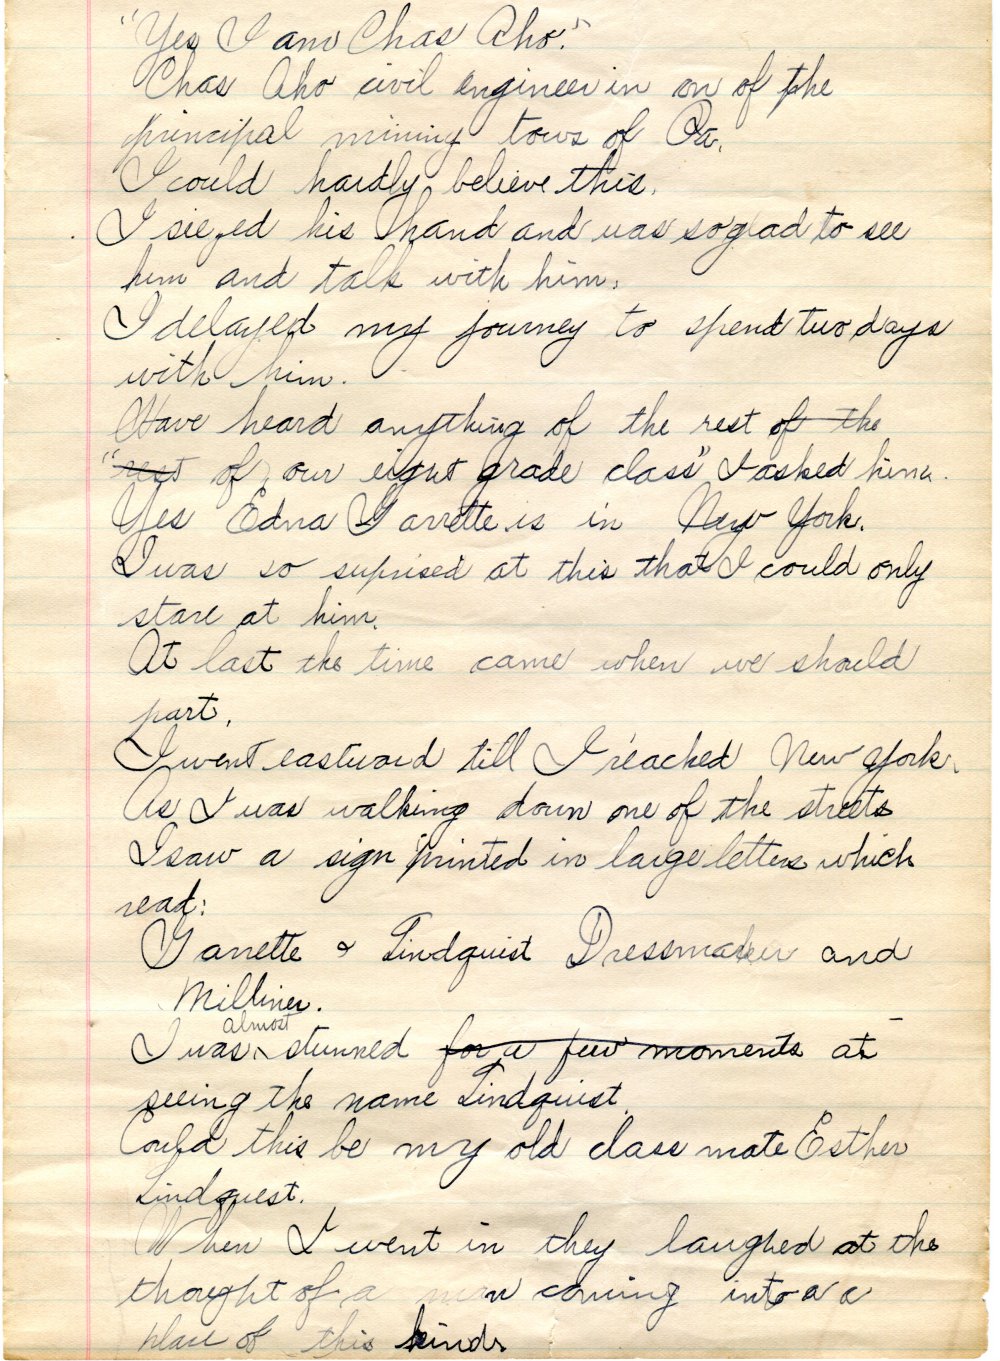 "Yes I am Chas Aho."
Chas Aho civil engineer in on of the
principal mining tows of Pa.
I could hardly believe this.
I siezed his hand and was so glad to see
him and talk with him.
I delayed my journey to spend two days
with him.
Have heard anything of the rest of the
"rest of our eight grade class" I asked him.
Yes Edna Garrette is in New York.
I was so suprised at this that I could only
stare at him.
At last the time came when we should
part.
I went eastward till I reached New York.
As I was walking down one of the streets
I saw a sign printed in large letters which
read:
Garrette & Lindquist Dressmaker and
Milliner.
almost
I was stunned for a few moments at
seeing the name Lindquist.
Could this be my old class mate Esther
Lindquest.
When I went in they laughed at the
thought of a man coming into a a
place of this kind.